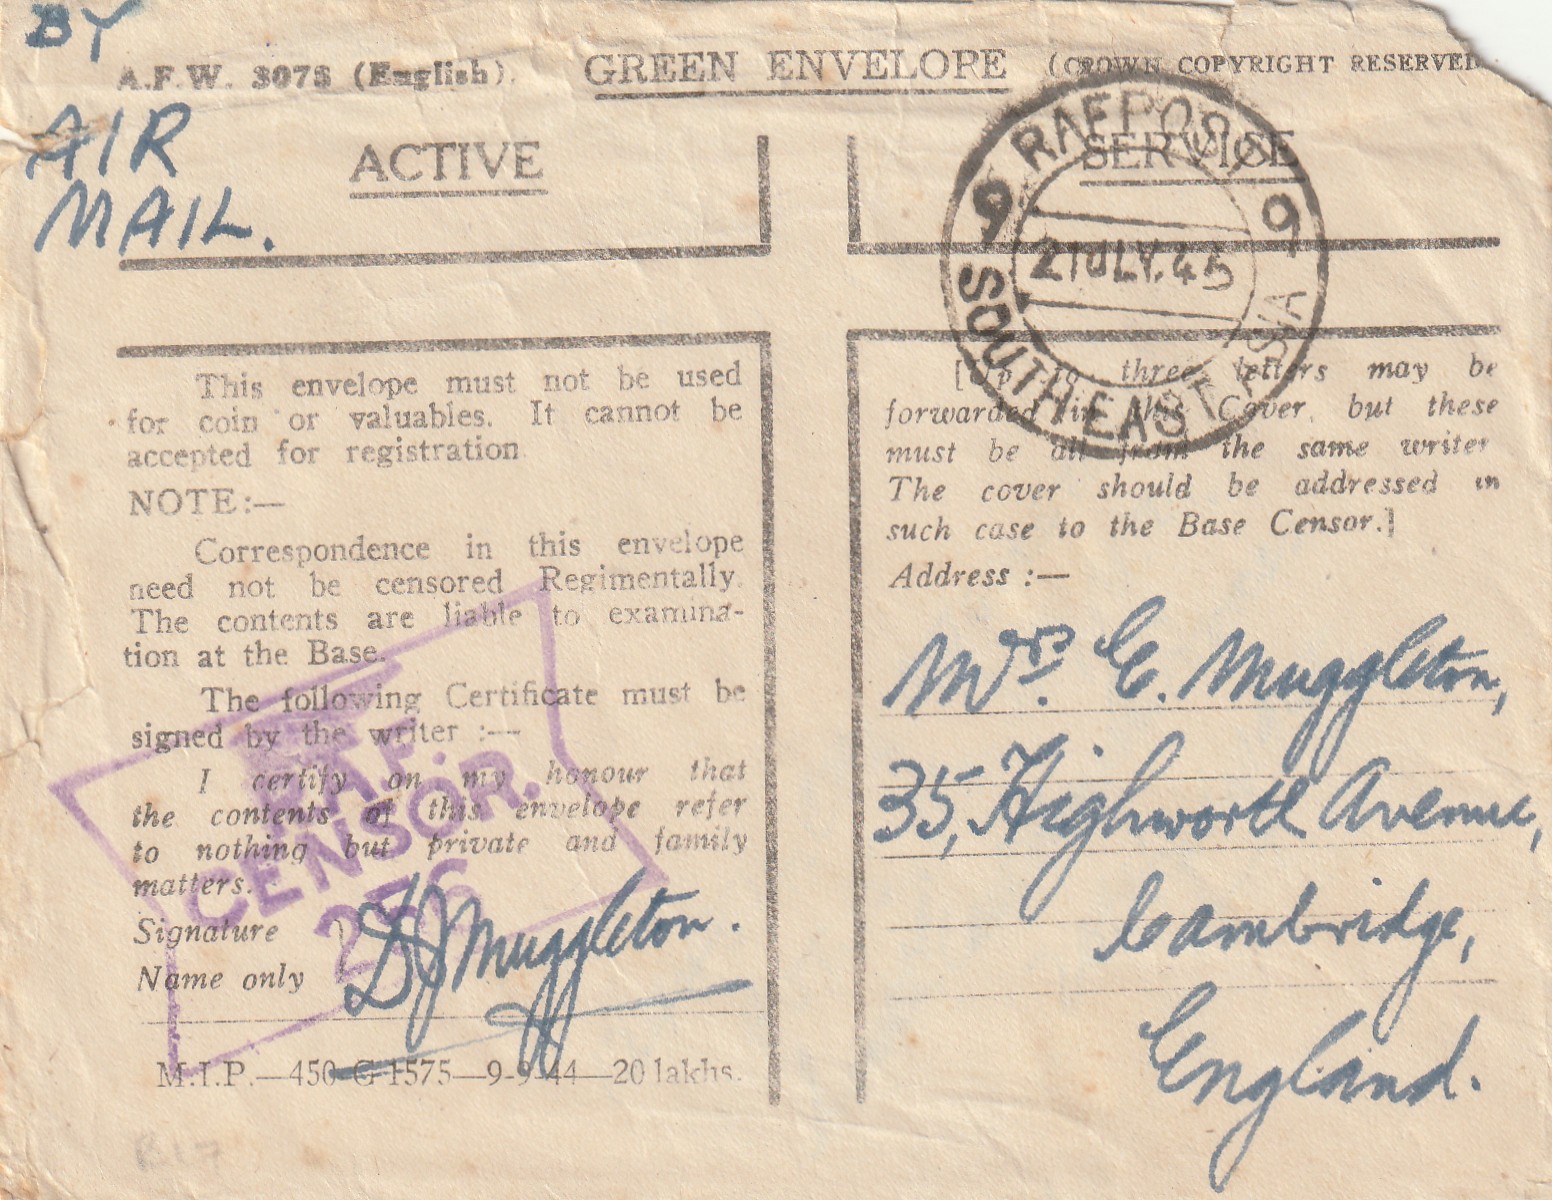 BY
AIR
MAIL.
A.F.W. 3078 (English).
GREEN ENVELOPE
(CROWN COPYRIGHT RESERVED
ACTIVE
SERVICE
RAFPOST
9 9
21 JULY.45
SOUTH EAST ASIA
This envelope must not be used
for coin or valuables. It cannot be
accepted for registration
NOTE:—
Correspondence in this envelope
need not be censored Regimentally.
The contents are liable to examina-
tion at the Base.
The following Certificate must be
signed by the writer :—
I certify on my honour that
the contents of this envelope refer
to nothing but private and family
matters.
Signature
Name only
D J Muggleton.
R.A.F.
CENSOR.
276
M.I.P.—450-G-1575—9-9-44—20 lakhs.
[Up to three letters may be
forwarded in this Cover, but these
must be all from the same writer
The cover should be addressed in
such case to the Base Censor.]
Address :—
Mrs. E. Muggleton,
35, Highworth Avenue,
Cambridge,
England.
R17